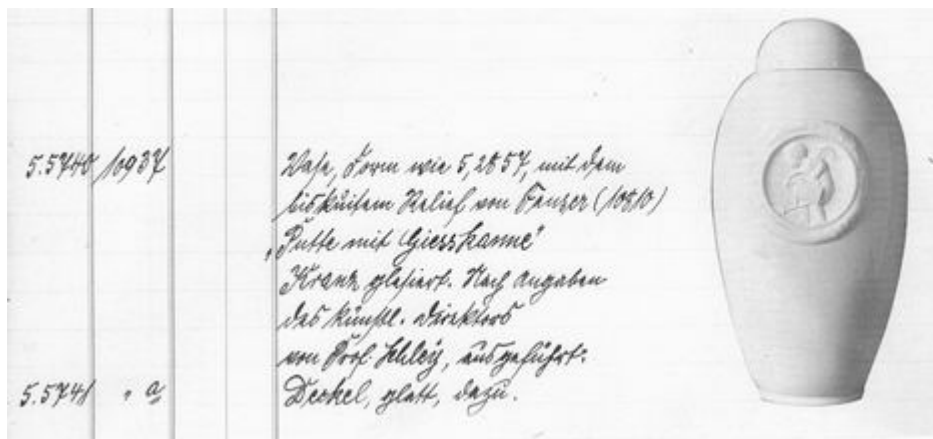 5.5740 10937 Vase, Form wie 5,2857, mit dem
biskuitem Relief von Panzer (10810)
„Putte mit Giesskanne"
Kranz glasiert. Nach Angaben
des künstl. Direktors
von Prof. Schley, ausgeführt.
5.5741 " a Deckel, glatt, dazu.